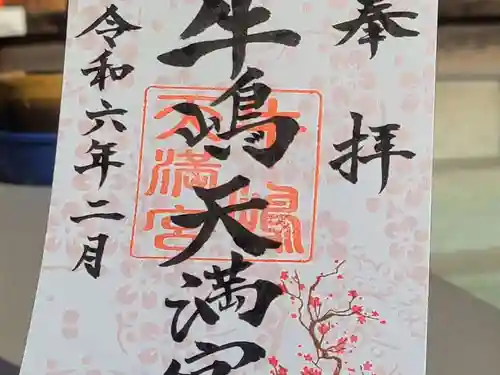 奉拝
牛嶋天満宮
令和六年二月
牛嶋
天満宮